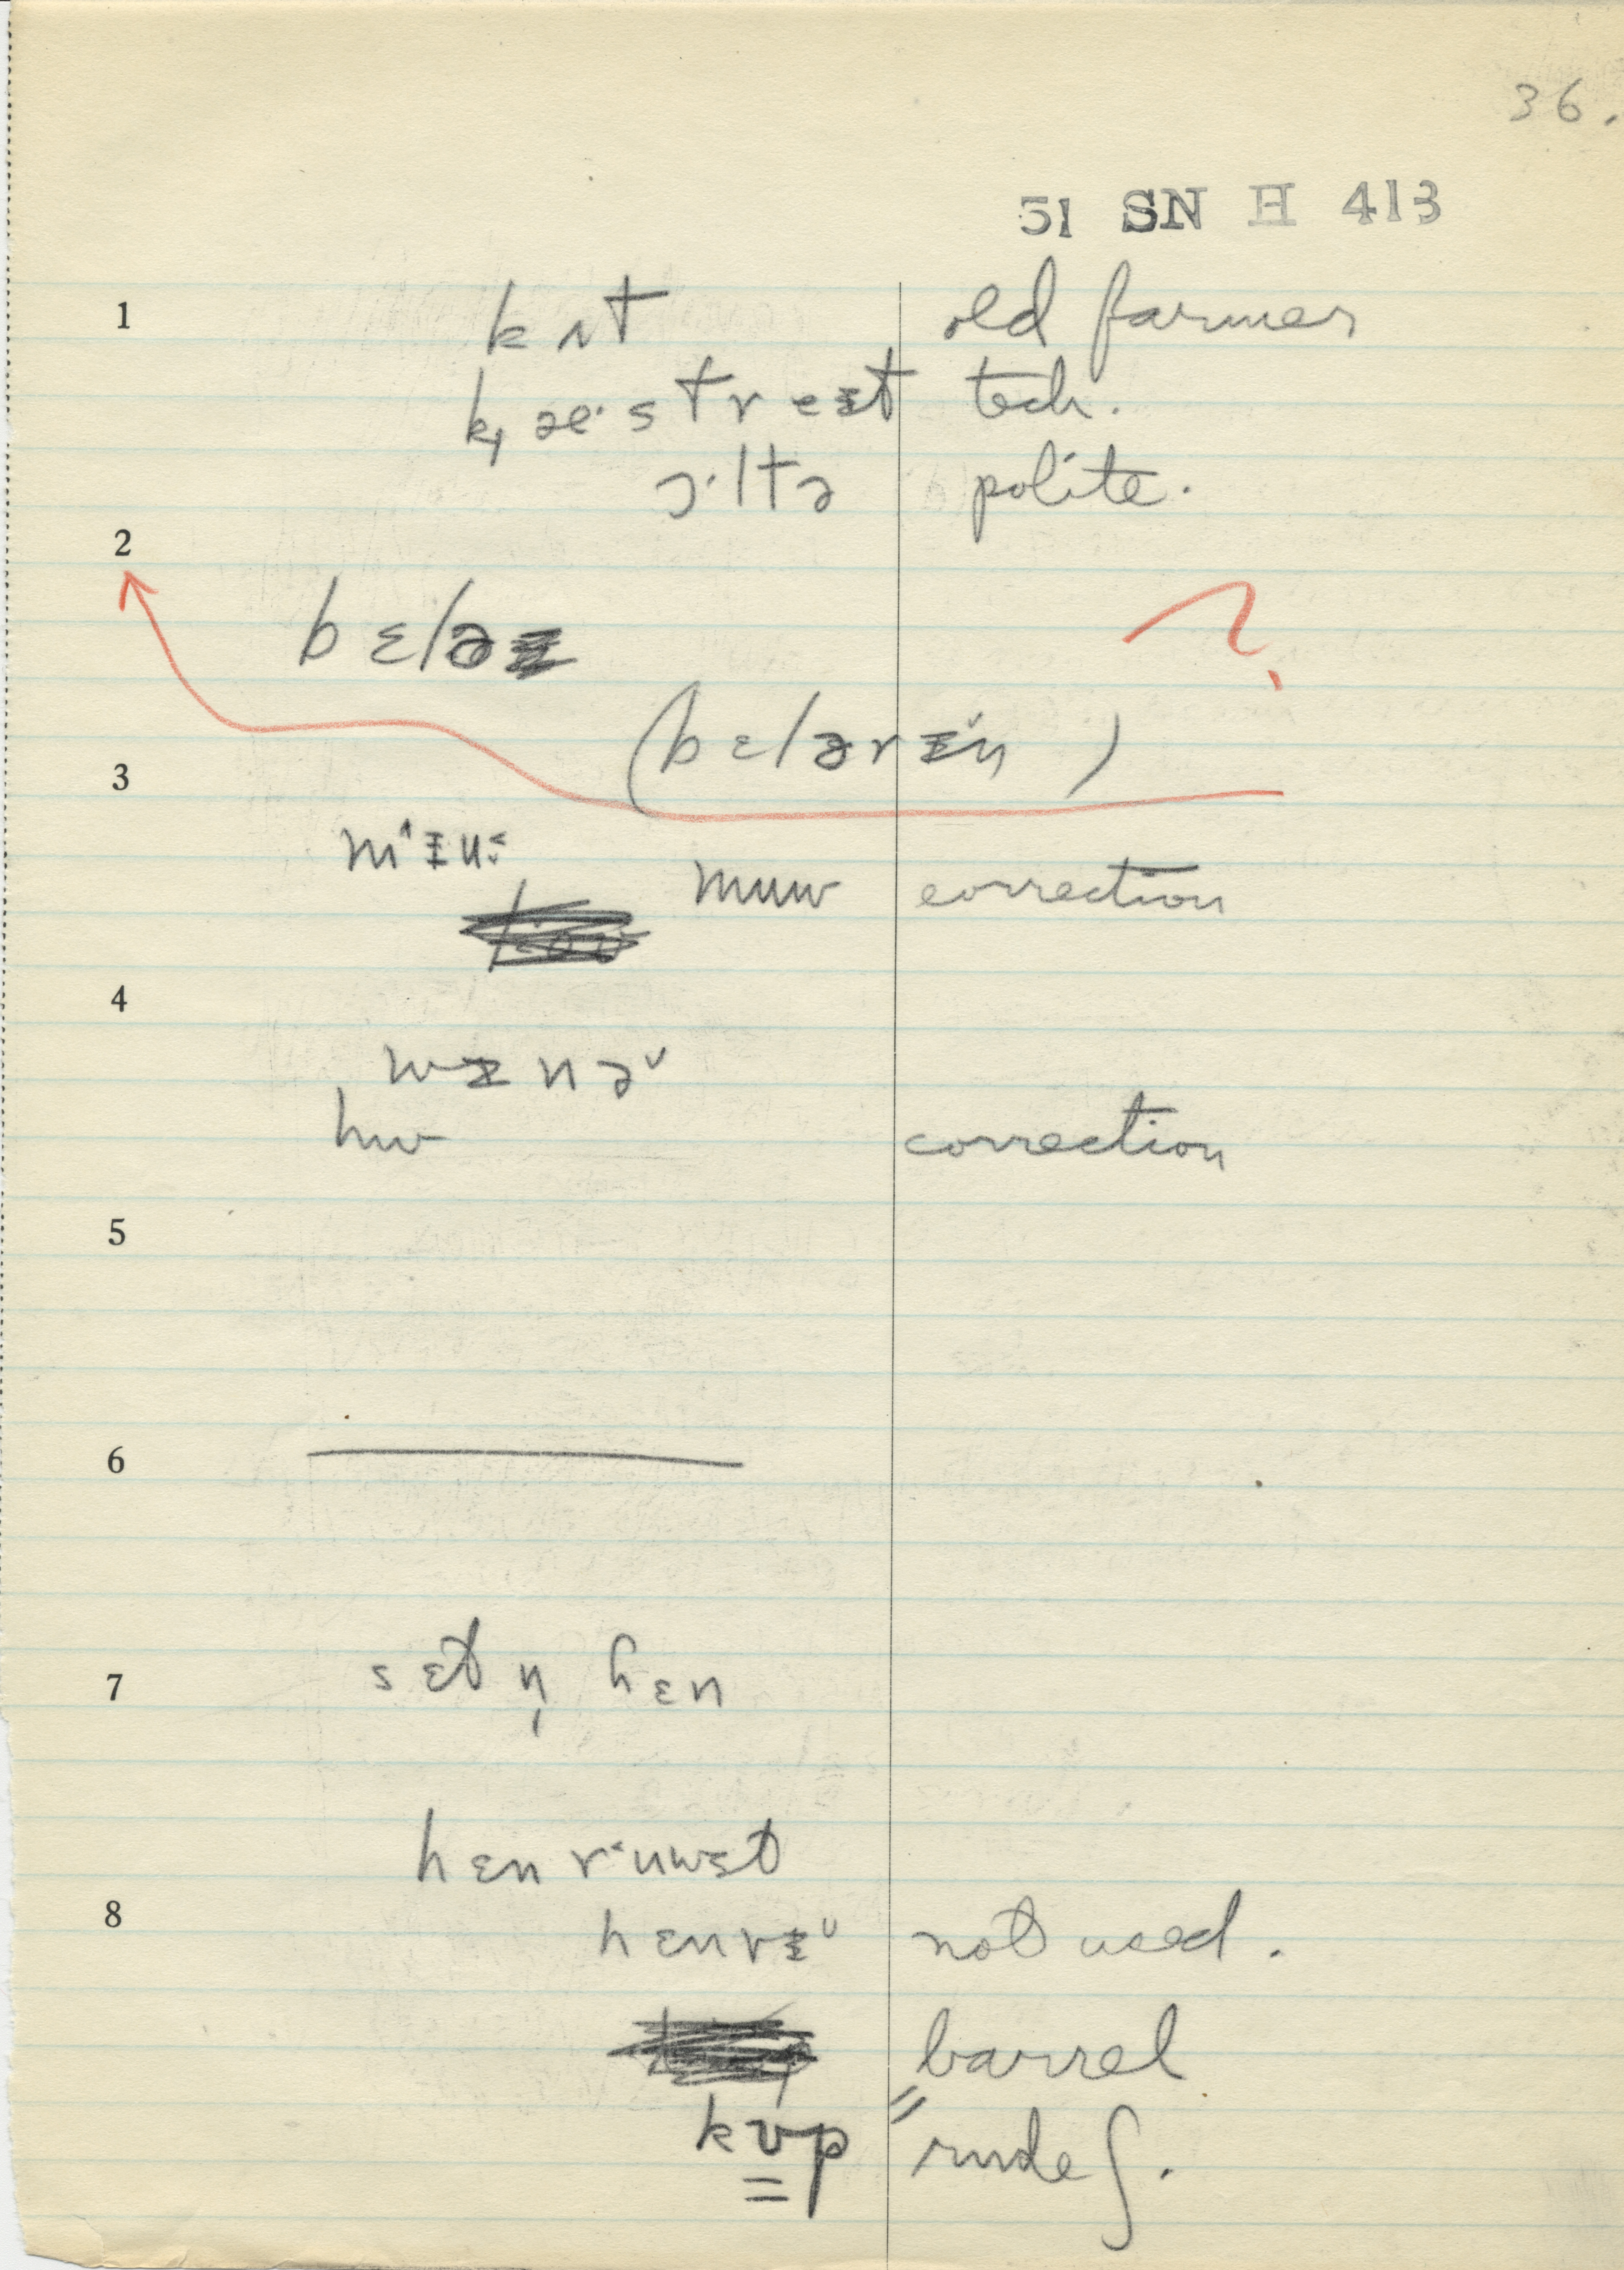 36.
51 SN H 413
1
kʌt old farmer
k̟æ·streᵻt tech.
ɔ·ltə polite.
2
bɛlə
?
(bɛlərᵻ˅n)
3
m˄ᵻu˂:
muw correction
4
wᵻnə˅
hw correction
5
6
7
sɛt n̩ hɛn
hɛnr˂uwst
8
hɛnrᵻ˅ not used.
barrel
kʋp rude ʃ.